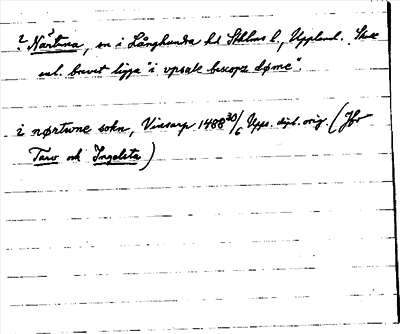 ? Närtuna, sn i Långhundra hd Sthlms l., Uppland. Skall
enl. brevet ligga "i vpsale biscops døme".
i nørtwne sokn, Vinsarp 1488 30/6 Upps. dipl. orig. (Jfr
Taro och Ingelsta)